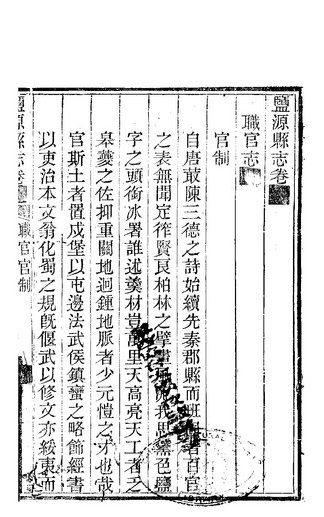 鹽源縣志卷
職官志
官制
自唐敭陳三德之詩始續先秦郡縣而班 者百官
之表無聞定筰賢良柏林之擘畫 我思 邑鹽
字之頭銜冰署誰述羹材豈 里天高亮天工者乏
皋夔之佐抑重關地迥鍾地脈者少元愷之才也哉
官斯土者置戍堡以屯邊法武侯鎮蠻之略飾經書
以吏治本文翁化蜀之規旣偃武以修文亦綏東而
鹽源縣志卷 職官官制